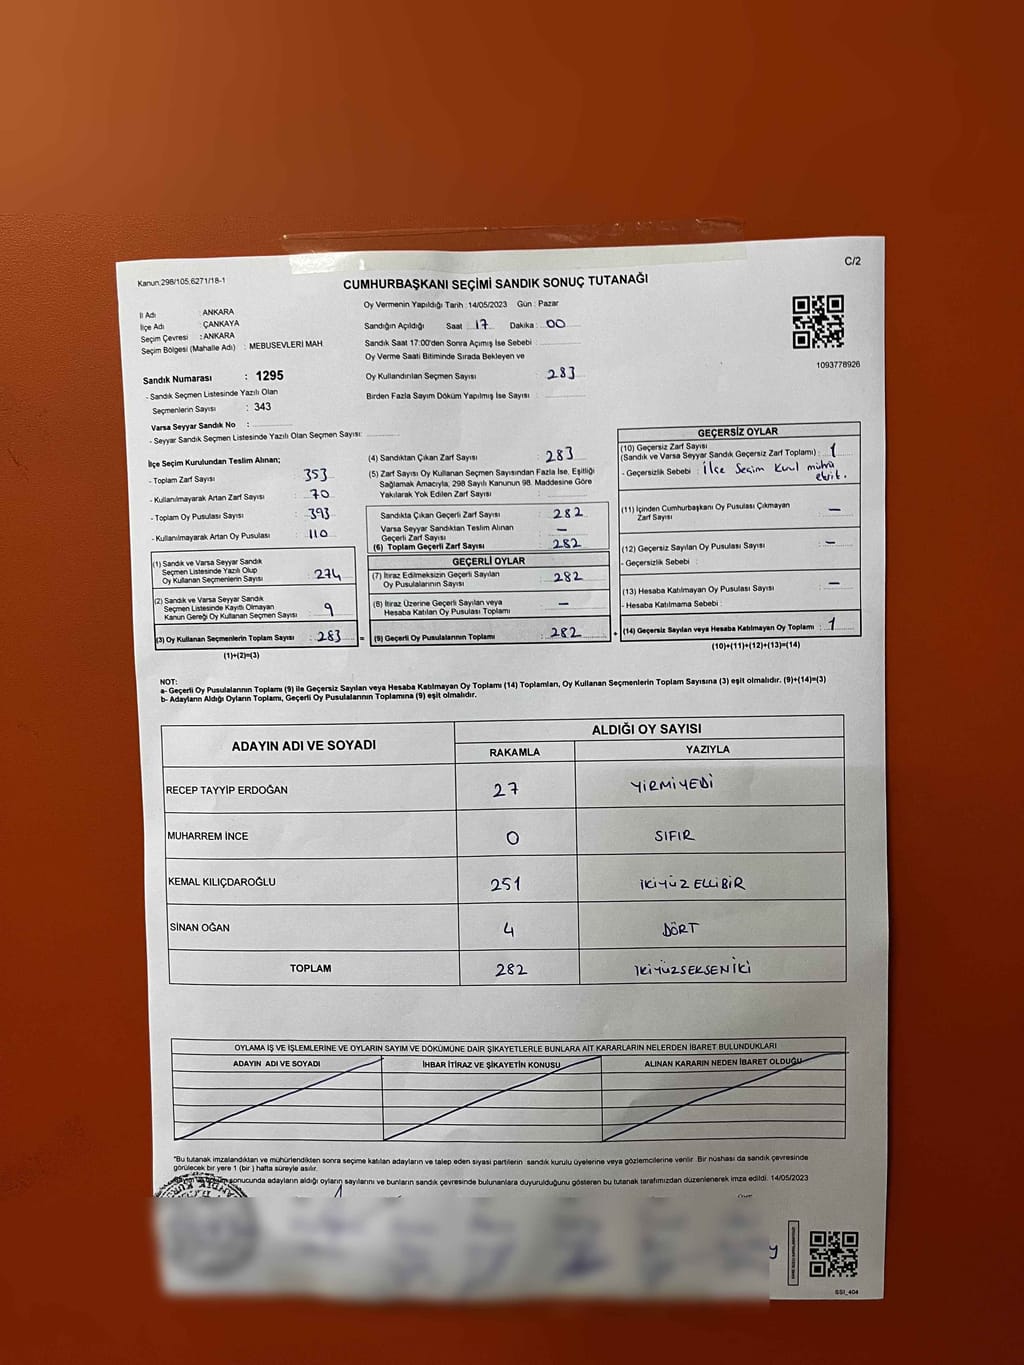 Kanun:298/105,6271/18-1
C/2
CUMHURBAŞKANI SEÇİMİ SANDIK SONUÇ TUTANAĞI
İl Adı : ANKARA
İlçe Adı : ÇANKAYA
Seçim Çevresi : ANKARA
Seçim Bölgesi (Mahalle Adı) : MEBUSEVLERİ MAH.
Sandık Numarası : 1295
- Sandık Seçmen Listesinde Yazılı Olan
Seçmenlerin Sayısı : 343
Varsa Seyyar Sandık No :
- Seyyar Sandık Seçmen Listesinde Yazılı Olan Seçmen Sayısı:
Oy Vermenin Yapıldığı Tarih : 14/05/2023 Gün : Pazar
Sandığın Açıldığı Saat : 17 Dakika : 00
Sandık Saat 17:00'den Sonra Açımış İse Sebebi :
Oy Verme Saati Bitiminde Sırada Bekleyen ve
Oy Kullandırılan Seçmen Sayısı : 283
Birden Fazla Sayım Döküm Yapılmış İse Sayısı :
1093778926
İlçe Seçim Kurulundan Teslim Alınan;
- Toplam Zarf Sayısı : 353
- Kullanılmayarak Artan Zarf Sayısı : 70
- Toplam Oy Pusulası Sayısı : 393
- Kullanılmayarak Artan Oy Pusulası : 110
(1) Sandık ve Varsa Seyyar Sandık
Seçmen Listesinde Yazılı Olup
Oy Kullanan Seçmenlerin Sayısı : 274
(2) Sandık ve Varsa Seyyar Sandık
Seçmen Listesinde Kayıtlı Olmayan
Kanun Gereği Oy Kullanan Seçmen Sayısı : 9
(3) Oy Kullanan Seçmenlerin Toplam Sayısı : 283
(1)+(2)=(3)
=
(4) Sandıktan Çıkan Zarf Sayısı : 283
(5) Zarf Sayısı Oy Kullanan Seçmen Sayısından Fazla İse, Eşitliği
Sağlamak Amacıyla, 298 Sayılı Kanunun 98. Maddesine Göre
Yakılarak Yok Edilen Zarf Sayısı :
Sandıkta Çıkan Geçerli Zarf Sayısı : 282
Varsa Seyyar Sandıktan Teslim Alınan
Geçerli Zarf Sayısı : –
(6) Toplam Geçerli Zarf Sayısı : 282
GEÇERLİ OYLAR
(7) İtiraz Edilmeksizin Geçerli Sayılan
Oy Pusulalarının Sayısı : 282
(8) İtiraz Üzerine Geçerli Sayılan veya
Hesaba Katılan Oy Pusulası Toplamı : –
(9) Geçerli Oy Pusulalarının Toplamı : 282
+
GEÇERSİZ OYLAR
(10) Geçersiz Zarf Sayısı
(Sandık ve Varsa Seyyar Sandık Geçersiz Zarf Toplamı) : 1
- Geçersizlik Sebebi : İlçe Seçim Kurul mührü
(11) İçinden Cumhurbaşkanı Oy Pusulası Çıkmayan
Zarf Sayısı : –
(12) Geçersiz Sayılan Oy Pusulası Sayısı : –
- Geçersizlik Sebebi :
(13) Hesaba Katılmayan Oy Pusulası Sayısı : –
- Hesaba Katılmama Sebebi :
(14) Geçersiz Sayılan veya Hesaba Katılmayan Oy Toplamı : 1
(10)+(11)+(12)+(13)=(14)
NOT:
a- Geçerli Oy Pusulalarının Toplamı (9) ile Geçersiz Sayılan veya Hesaba Katılmayan Oy Toplamı (14) Toplamları, Oy Kullanan Seçmenlerin Toplam Sayısına (3) eşit olmalıdır. (9)+(14)=(3)
b- Adayların Aldığı Oyların Toplamı, Geçerli Oy Pusulalarının Toplamına (9) eşit olmalıdır.
ADAYIN ADI VE SOYADI
ALDIĞI OY SAYISI
RAKAMLA YAZIYLA
RECEP TAYYİP ERDOĞAN 27 YİRMİYEDİ
MUHARREM İNCE 0 SIFIR
KEMAL KILIÇDAROĞLU 251 İKİYÜZELLİBİR
SİNAN OĞAN 4 DÖRT
TOPLAM 282 İKİYÜZSEKSENİKİ
OYLAMA İŞ VE İŞLEMLERİNE VE OYLARIN SAYIM VE DÖKÜMÜNE DAİR ŞİKAYETLERLE BUNLARA AİT KARARLARIN NELERDEN İBARET BULUNDUKLARI
ADAYIN ADI VE SOYADI İHBAR İTİRAZ VE ŞİKAYETİN KONUSU ALINAN KARARIN NEDEN İBARET OLDUĞU
"Bu tutanak imzalandıktan ve mühürlendikten sonra seçime katılan adayların ve talep eden siyasi partilerin sandık kurulu üyelerine veya gözlemcilerine verilir. Bir nüshası da sandık çevresinde
görülecek bir yere 1 (bir ) hafta süreyle asılır.
sonucunda adayların aldığı oyların sayılarını ve bunların sandık çevresinde bulunanlara duyurulduğunu gösteren bu tutanak tarafımızdan düzenlenerek imza edildi. 14/05/2023
SSI_404